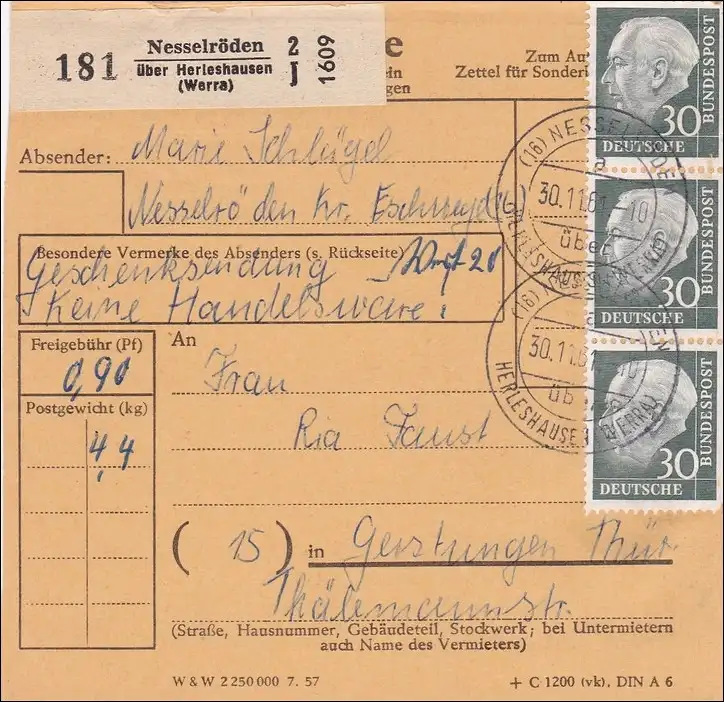 181
Nesselröden
über Herleshausen
(Werra)
2
J
1609
e
Zum Au
ein
Zettel für Sonderl
gen
Absender: Marie Schlägel
Nesselröden Kr. Eschwege
Besondere Vermerke des Absenders (s. Rückseite)
Geschenksendung Wert 20
Keine Handelsware!
Freigebühr (Pf)
0,90
Postgewicht (kg)
4,4
An
Frau
Ria Faust
(15) in Gerstungen Thür.
Thälemannstr.
(Straße, Hausnummer, Gebäudeteil, Stockwerk; bei Untermietern
auch Name des Vermieters)
W & W 2 250 000 7. 57
+ C 1200 (vk), DIN A 6
30
DEUTSCHE
BUNDESPOST
30
DEUTSCHE
BUNDESPOST
30
DEUTSCHE
BUNDESPOST
(16) NESSEL DEN
a
30.11.61.-10
über
HERLESHAUSEN
(16) NE EN
a
30.11.61.-10
üb
HERLESHAUSEN (WERRA)